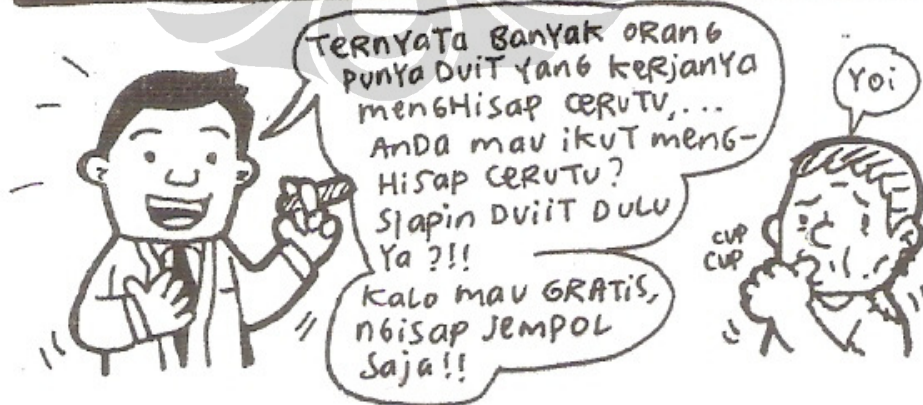 TERNYATA BANYAK ORANG
PUNYA DUIT YANG KERJANYA
MENGHISAP CERUTU,...
ANDA MAU IKUT MENG-
HISAP CERUTU?
SIAPIN DUIIT DULU
YA ?!!
KALO MAU GRATIS,
NGISAP JEMPOL
SAJA!!
YOI
CUP
CUP